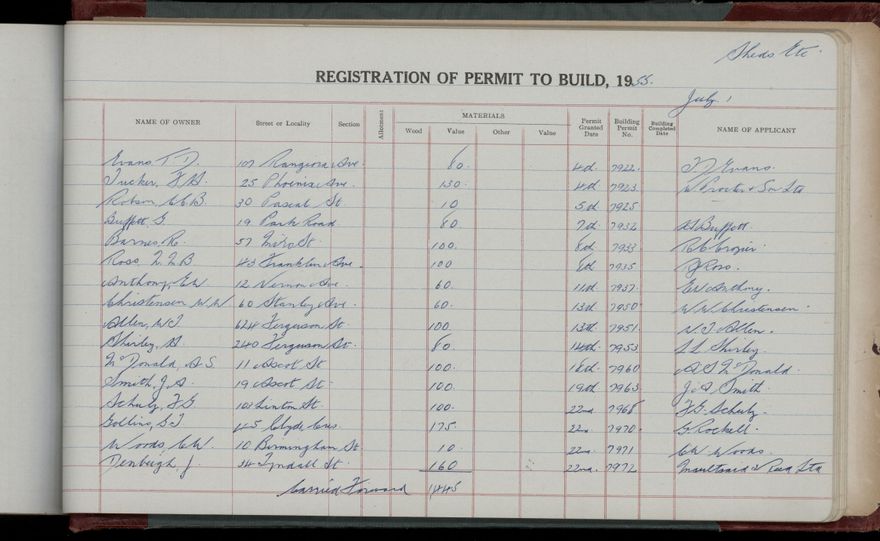 Sheds Etc.
REGISTRATION OF PERMIT TO BUILD, 1955.
July 1
NAME OF OWNER Street or Locality Section Allotment MATERIALS Wood Value Other Value Permit Granted Date Building Permit No. Building Completed Date NAME OF APPLICANT
Evans T. D. 107 Rangiora Ave. 80. 4th. 7922. T. D. Evans.
Tucker, F. 25 Phoenix Ave. 130. 4th 7923 & Son Ltd
Robson, 30 Pascal St 10 5th 7925
Buffett G. 19 Park Road 80 7th 7932 Buffett.
Barnes, R. 57 St. 100. 8th 7933 R. C. Crozier.
Ross 43 Franklin Ave. 100 8th 7935 Ross.
Anthony, E W 12 Vernon Ave. 60. 11th 7937. E W Anthony.
Christensen W. W 60 Stanley Ave. 60. 13th 7950 W. W. Christensen
Allen, W. J 624 Ferguson St. 100 13th 7951 W. J Allen.
Shirley, 240 Ferguson St. 80 14th 7953 Shirley.
McDonald, A S. 11 Ascot St 100. 18th 7960 A S McDonald.
Smith, J. A. 19 Ascot St. 100. 19th 7963 J. A. Smith
Schulz, F G. Linton St. 100. 22nd 7968 F. G. Schulz.
Collins, 45 Clyde Cres. 175. 22nd 7970. G. Rockell.
Woods, C W. 10 Birmingham St. 10. 22nd 7971 C W Woods.
Denbigh, J. 34 Tyndall St. 160 22nd. 7972 & Reed Ltd
Carried Forward 1445